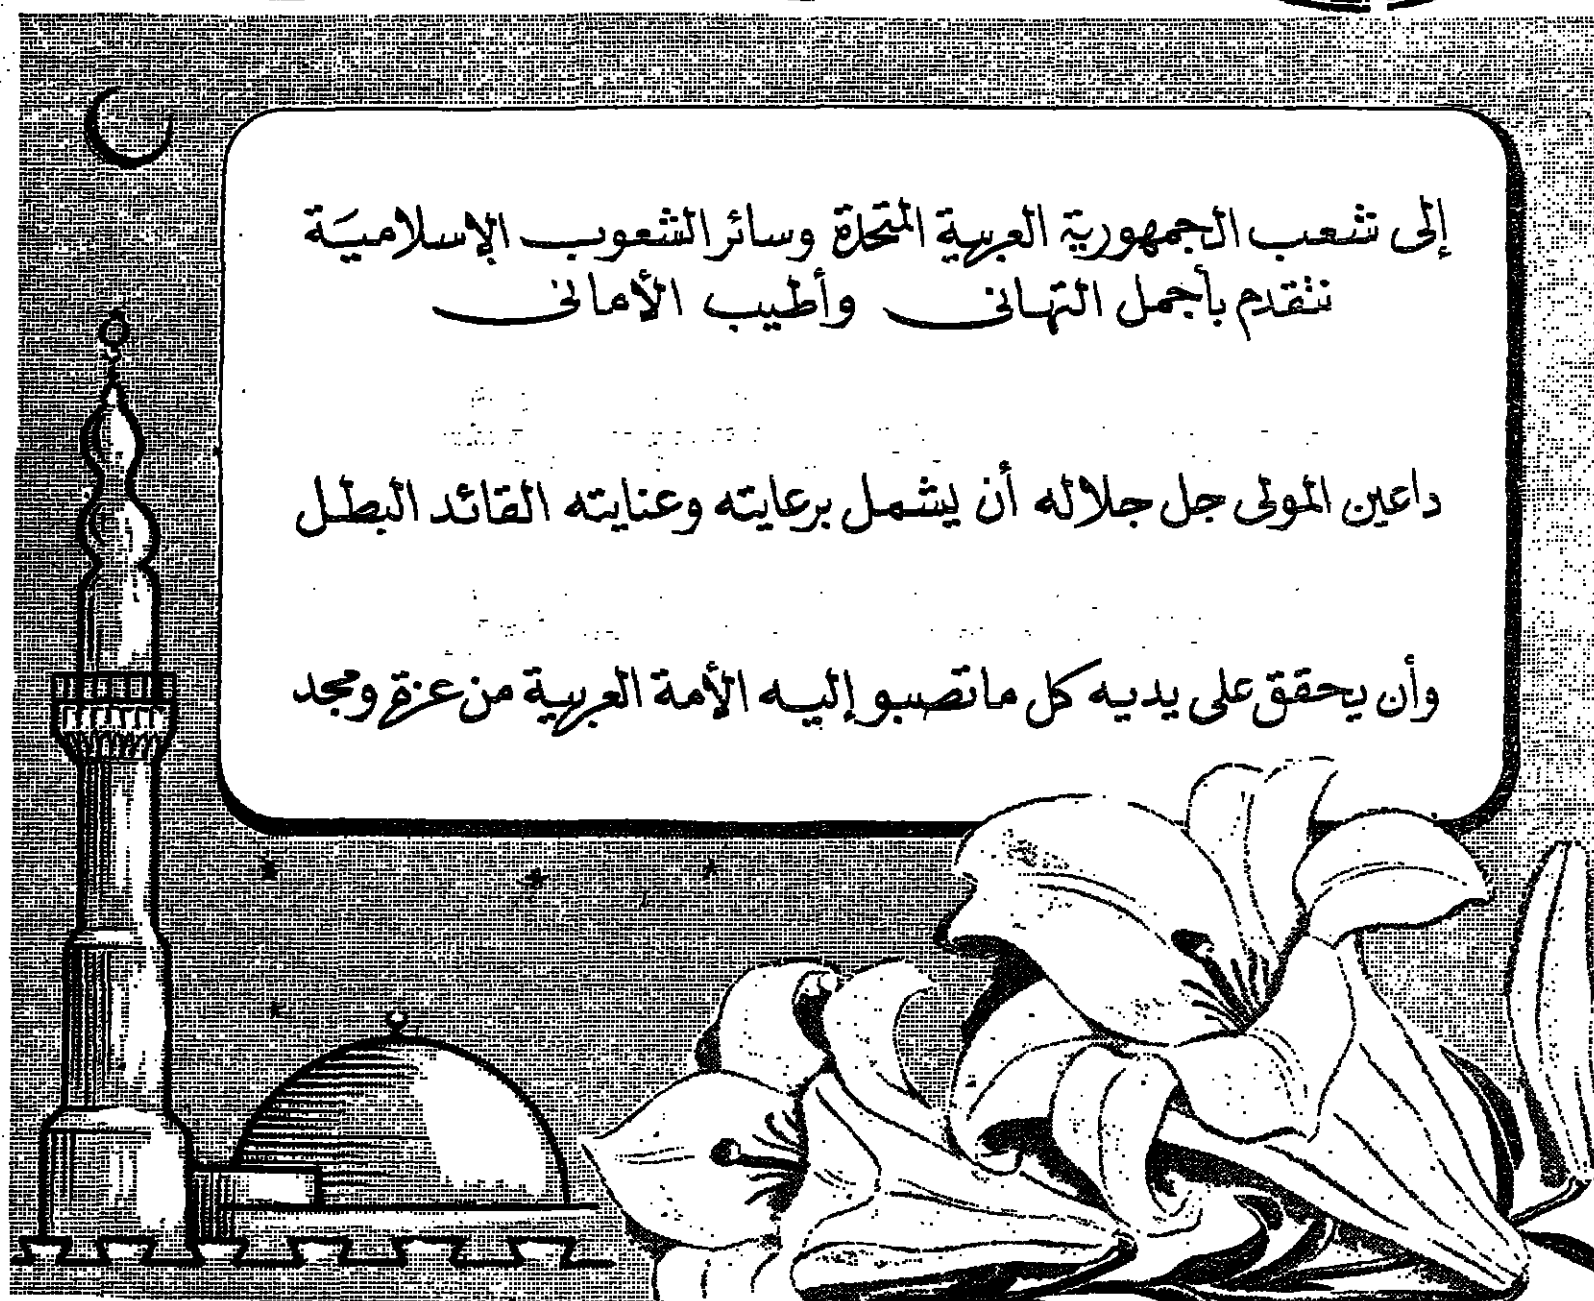 إلى شعب الجمهورية العربية المتحدة وسائر الشعوب الإسلامية
نتقدم بأجمل التهانى وأطيب الأمانى
داعين المولى جل جلاله أن يشمل برعايته وعنايته القائد البطل
وأن يحقق على يديه كل ما تصبو إليه الأمة العربية من عزة ومجد